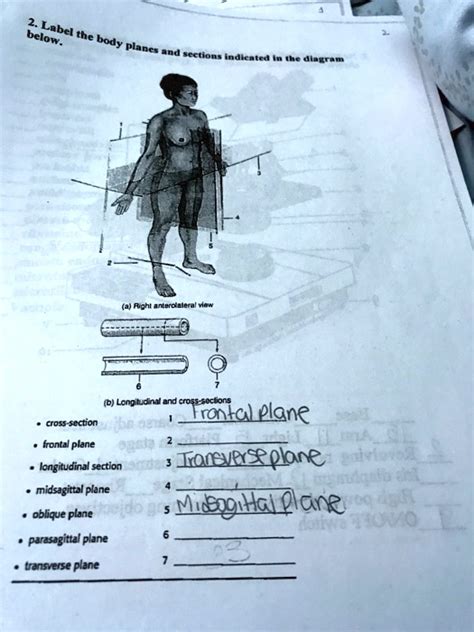 2. Label the body planes and sections indicated in the diagram
below.
1
3
4
5
2
(a) Right anterolateral view
6
7
(b) Longitudinal and cross-sections
• cross-section
1 Frontal plane
• frontal plane
2
• longitudinal section
3 Transverse plane
• midsagittal plane
4
• oblique plane
5 Midsagittal Plane
• parasagittal plane
6
• transverse plane
7